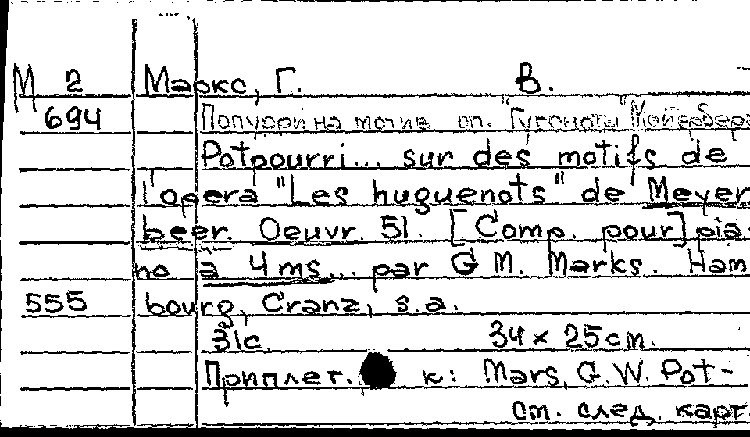 М 2 Маркс, Г. В.
694 Попурри на мотив оп. "Гугеноты" Мейербер
Potpourri... sur des motifs de
l'opera "Les huguenots" de Meyer
beer. Oeuvr. 51. [Comp. pour] pia-
no à 4 ms... par G. M. Marks. Ham
555 bourg, Cranz, s.a.
31с. 34 x 25 см.
Приплет. к: Mars, G. W. Pot-
см. след. карт.